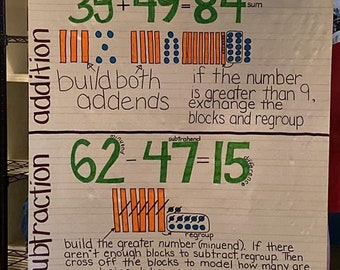 35 + 49 = 84 sum
addition
build both
addends
if the number
is greater than 9,
exchange the
blocks and regroup
subtraction
minuend
subtrahend
difference
62 - 47 = 15
regroup
build the greater number (minuend). If there
aren't enough blocks to subtract, regroup. Then
cross off the blocks to model how many are